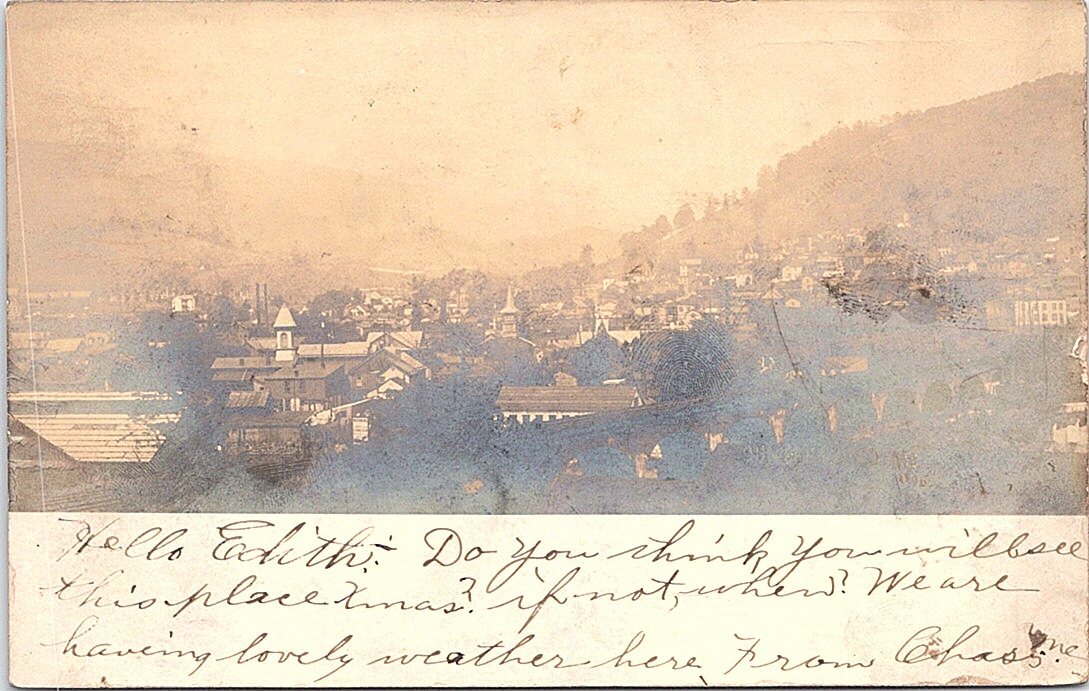 Hello Edith:- Do you think you will see
this place Xmas? if not, when? We are
having lovely weather here From Chas.